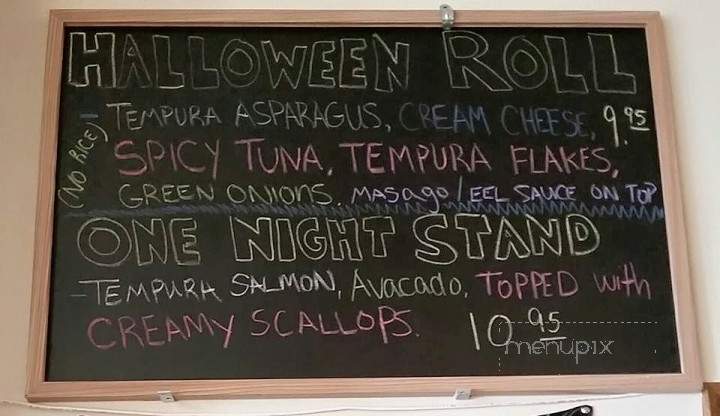 HALLOWEEN ROLL
- TEMPURA ASPARAGUS, CREAM CHEESE, 9.95
(NO RICE) SPICY TUNA, TEMPURA FLAKES,
GREEN ONIONS, MASAGO/EEL SAUCE ON TOP
ONE NIGHT STAND
- TEMPURA SALMON, Avacado, TOPPED with
CREAMY SCALLOPS. 10.95
menupix